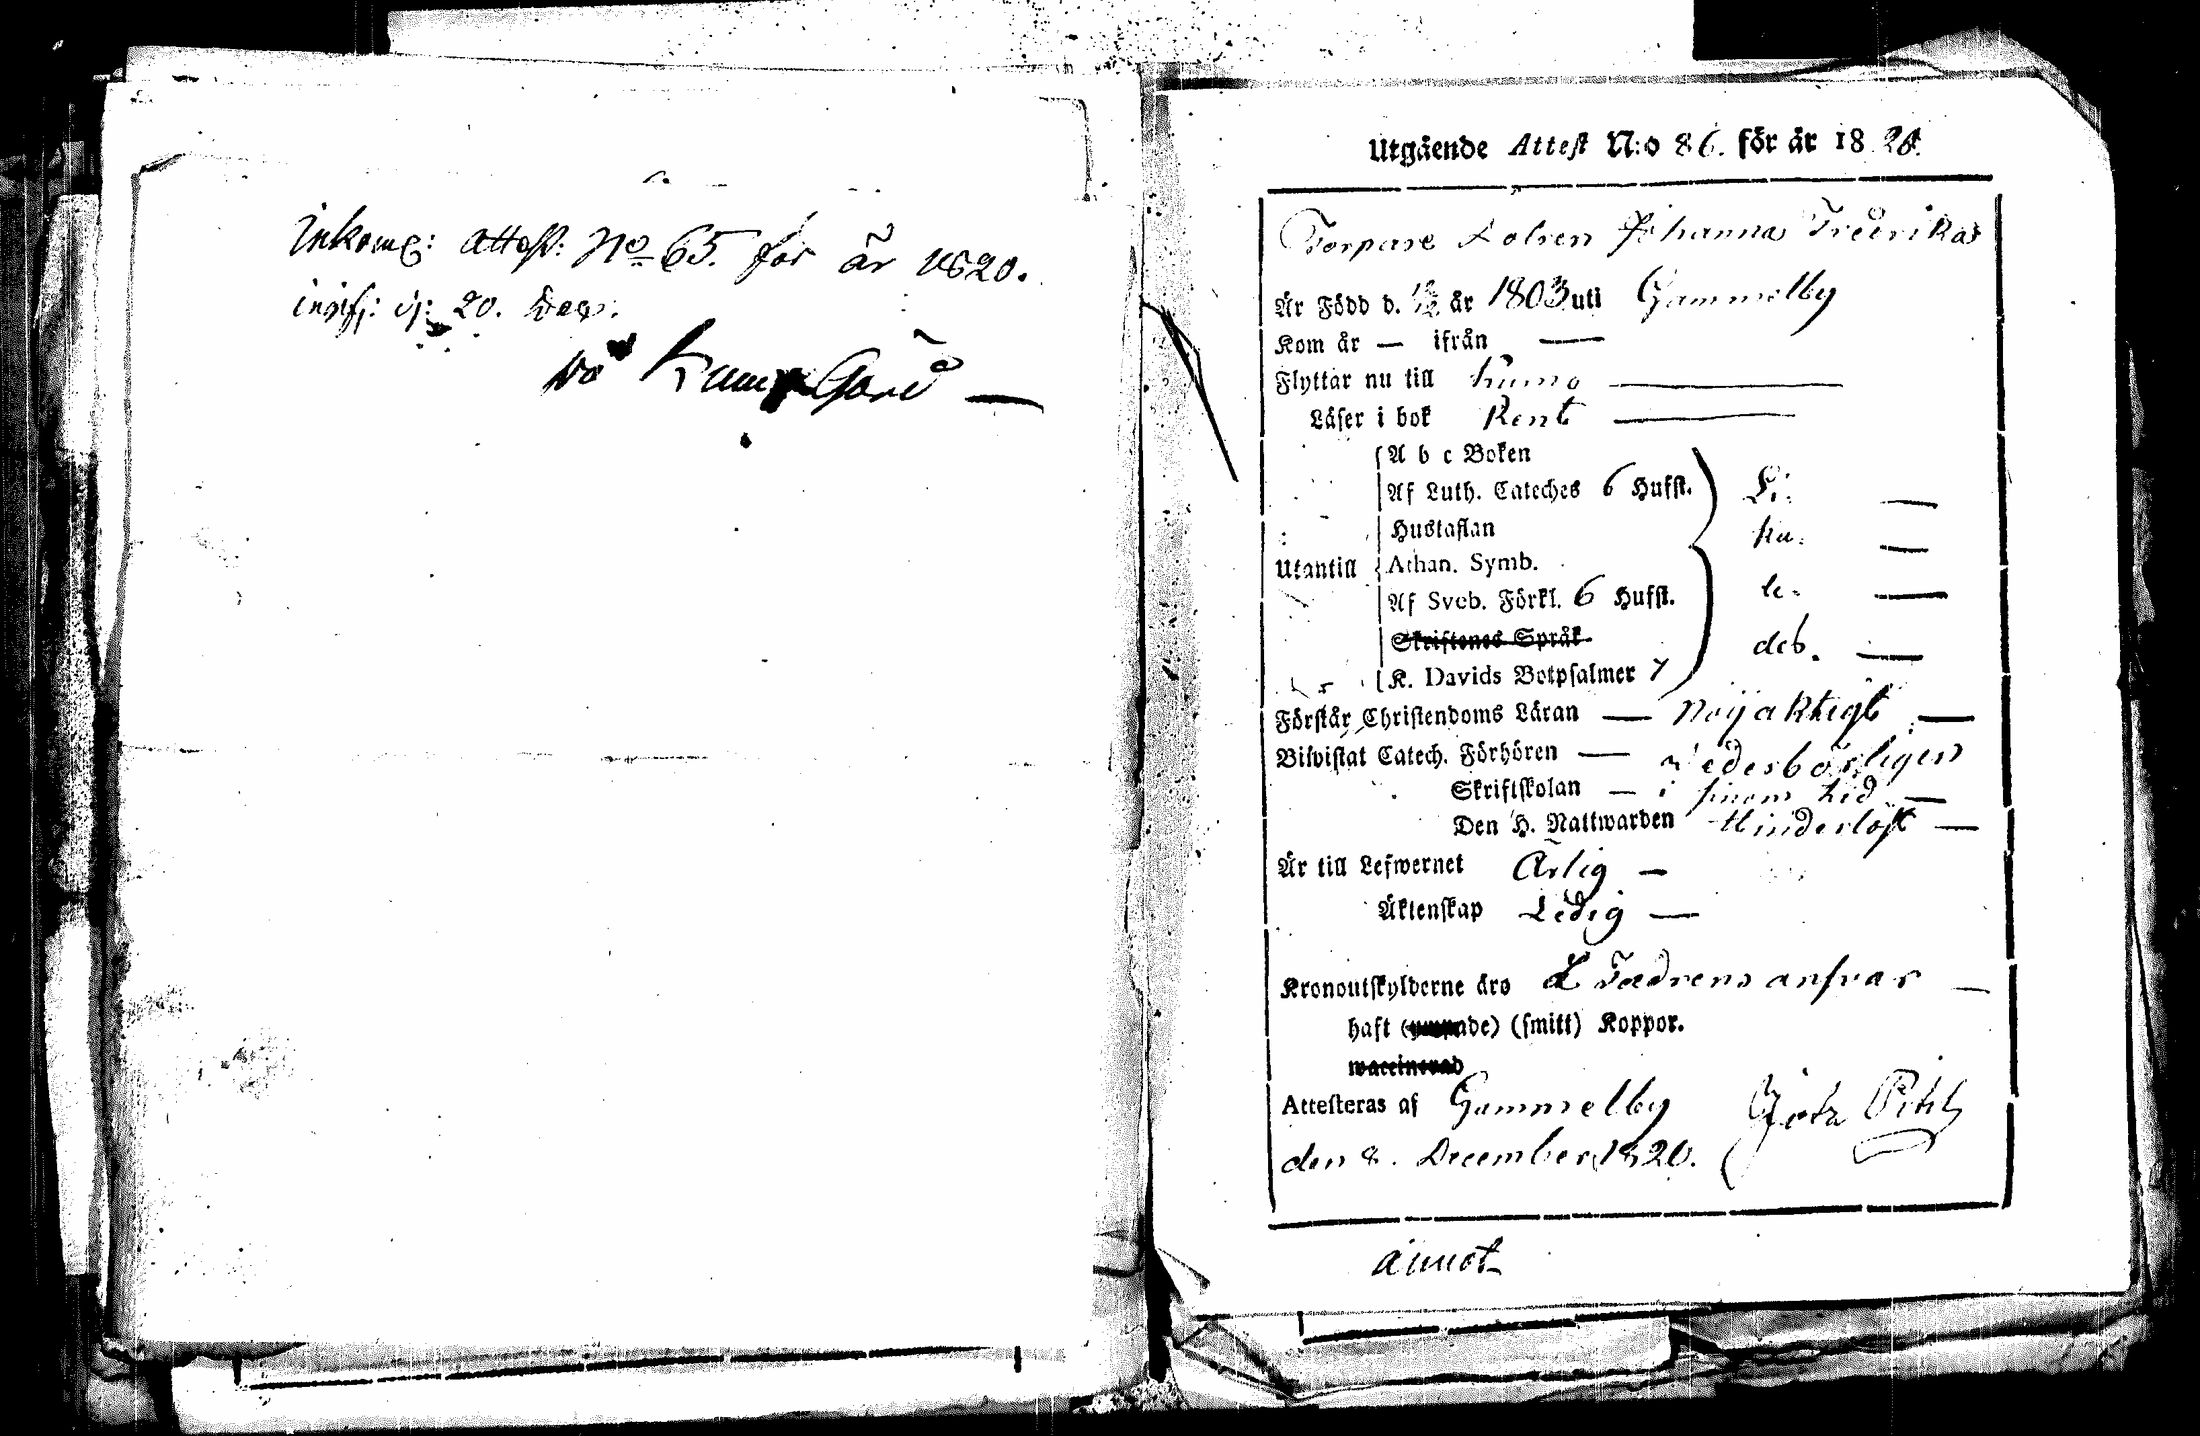 Inkomg: Attest: No 65. för år 1820.
20. Dec.
Kumo Gård —
Utgående Attest N:o 86. för år 1820.
Torpare Dotren Johanna Fredrika
Är Född d. år 1803 uti Gammelby
Kom år — ifrån —
Flyttar nu till Kumo —
Läser i bok Rent —
A b c Boken
Af Luth. Cateches 6 Hufst. Li. —
Hustaflan ku. —
Utantill Athan. Symb.
Af Sveb. Förkl. 6 Hufst. le. —
Skriftenes Språk
det. —
K. Davids Botpsalmer 7
Förstår Christendoms Läran — Nöijaktigt —
Biwistat Catech. Förhören — wederbörligen
Skriftskolan — i sinom tid —
Den H. Nattwarden Hinderlöst —
Är till Lefwernet Ärlig —
Äktenskap Ledig —
Kronoutskylderne äro Fædrens answar —
haft (smitt) Koppor.
waccinerad
Attesteras af Gammelby
den 8. December 1820.